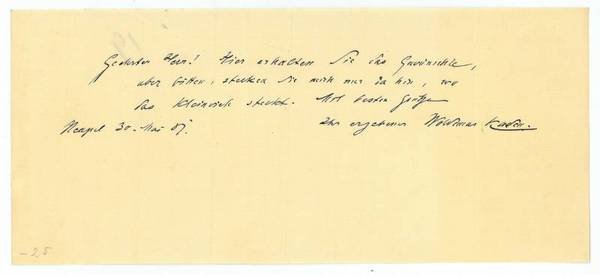 Geehrter Herr! Hier erhalten Sie das Gewünschte,
aber bitte, stecken Sie mich nur da hin, wo
das Kleinvieh steckt. Mit besten Grüßen
Neapel 30. Mai 87. Ihr ergebener Woldemar Kaden.
-25